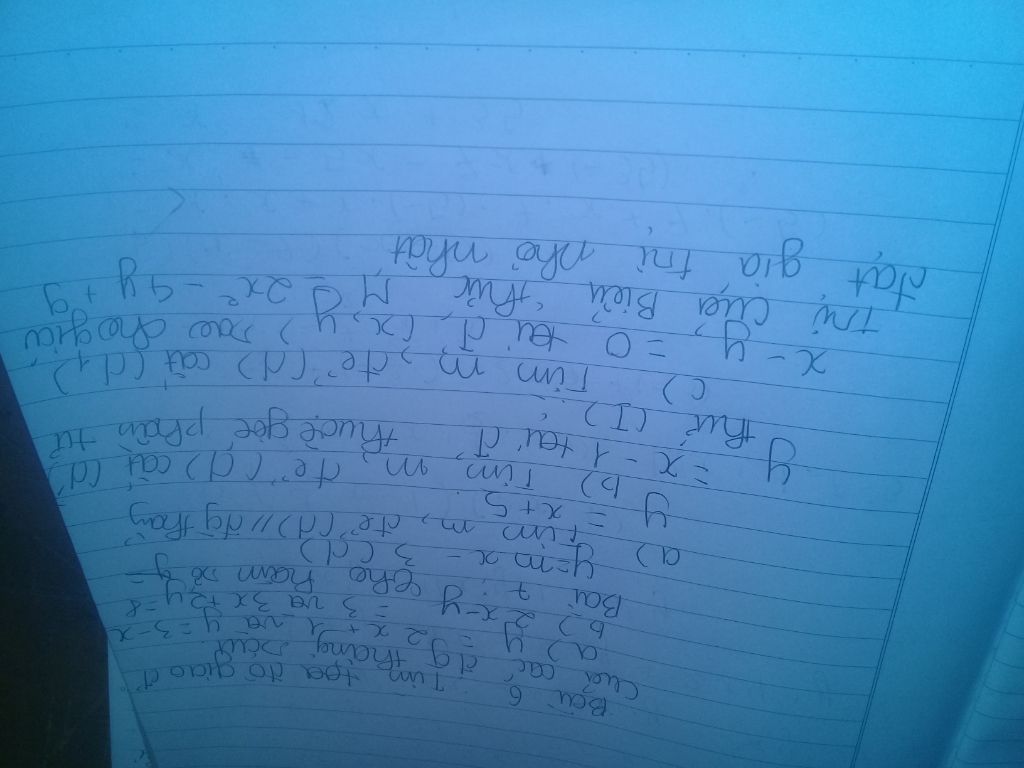 Bài 6 Tìm tọa độ giao đ'
của các đg thẳng sau
a) y = 2x+1 và y = 3-x
b) 2x-y = 3 và 3x+2y = 8
Bài 7: Cho hàm số y =
y = mx - 3 (d)
a) Tìm m để (d) // đg thẳng
y = x+5.
b) Tìm m để (d) cắt (d')
y = x-1 tại đ' thuộc góc phần tư
thứ (I).
c) Tìm m để (d) cắt (d1)
x - y = 0 tại đ' (x, y) sao cho giá
trị của Biểu thức M = 2x² - 4y + 9
đạt giá trị nhỏ nhất